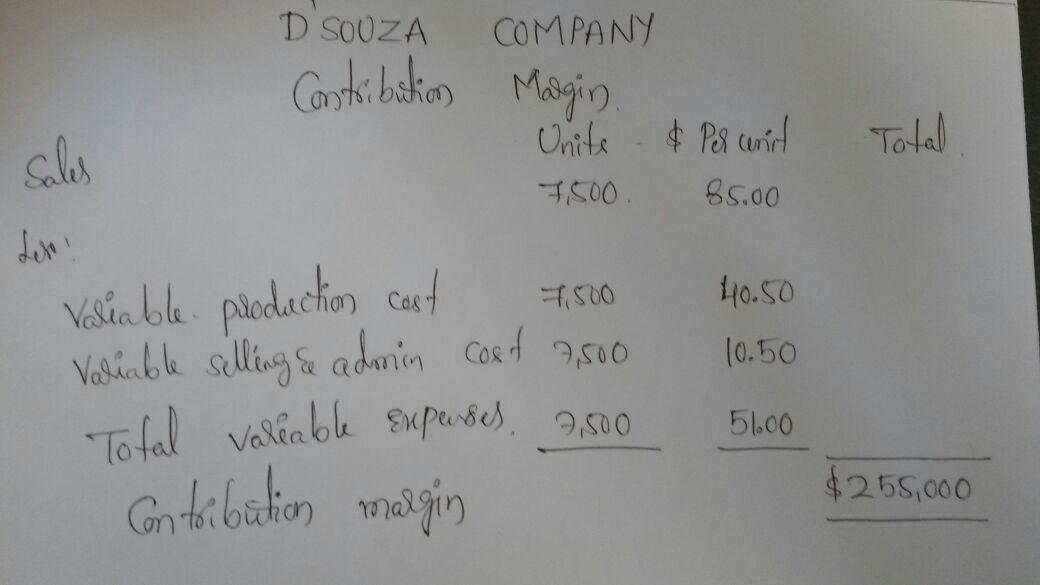 D'SOUZA COMPANY
Contribution Margin.
Units $ Per unit Total.
Sales 7,500. 85.00
Less:
Variable production cost 7,500 40.50
Variable selling & admin cost 7,500 10.50
Total variable expenses. 7,500 51.00
Contribution margin $255,000